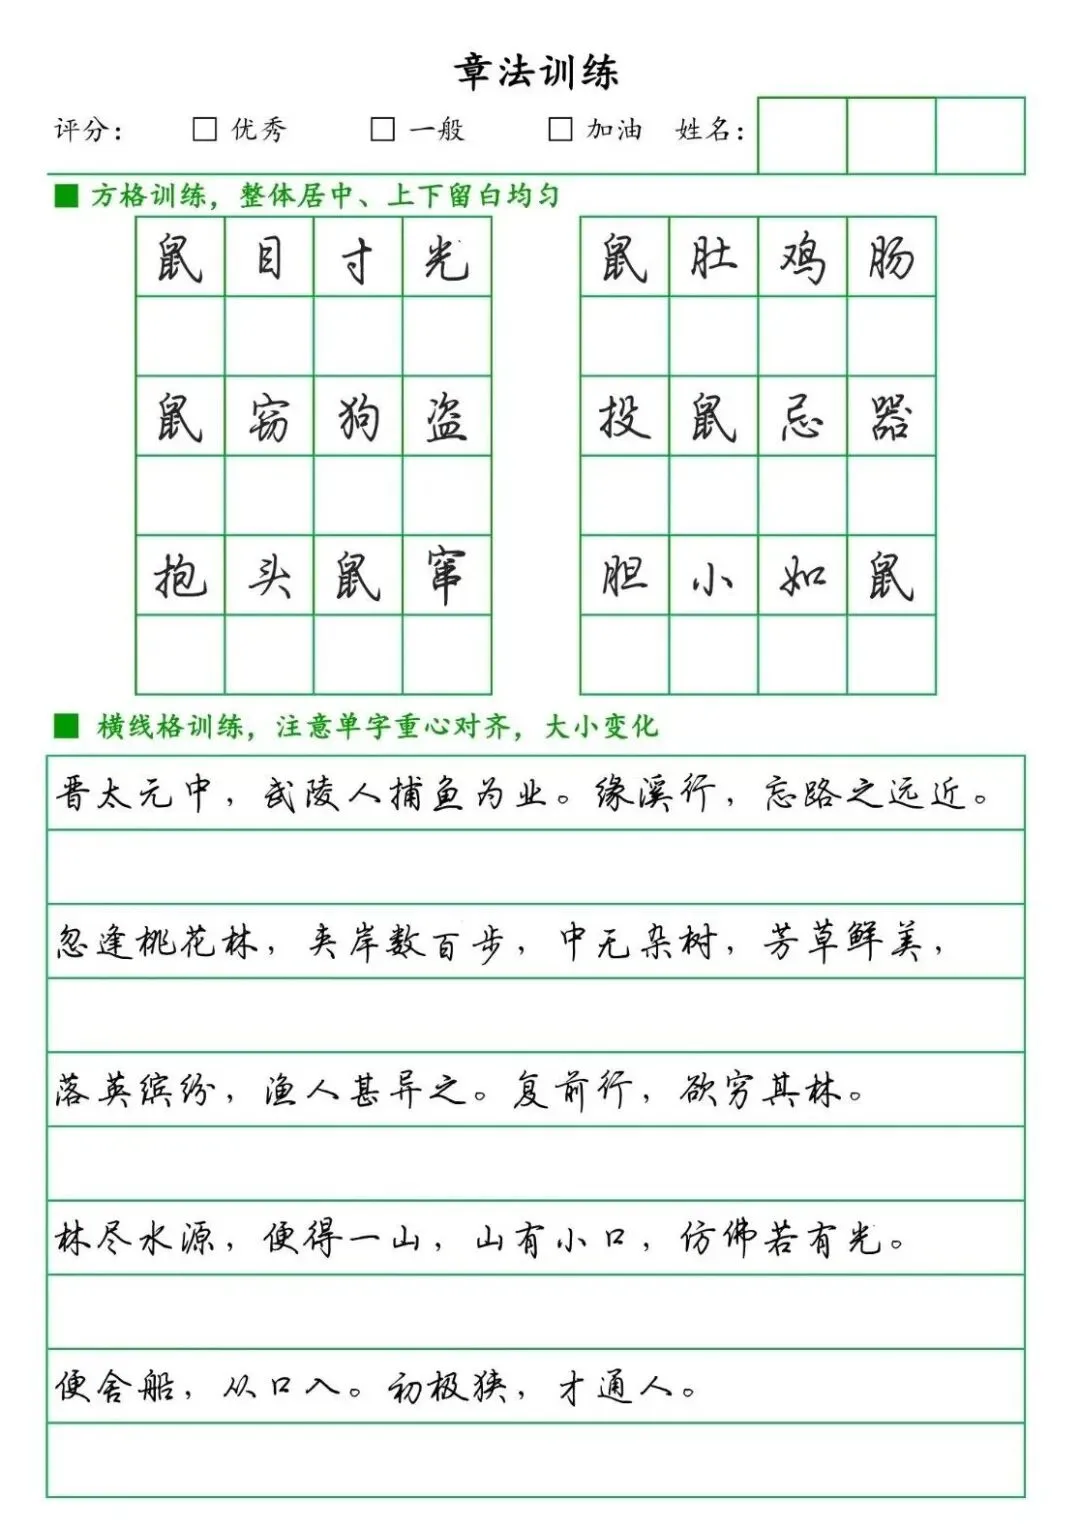 章法训练
评分： □ 优秀 □ 一般 □ 加油 姓名：
■ 方格训练，整体居中、上下留白均匀
鼠目寸光 鼠肚鸡肠
鼠窃狗盗 投鼠忌器
抱头鼠窜 胆小如鼠
■ 横线格训练，注意单字重心对齐，大小变化
晋太元中，武陵人捕鱼为业。缘溪行，忘路之远近。
忽逢桃花林，夹岸数百步，中无杂树，芳草鲜美，
落英缤纷，渔人甚异之。复前行，欲穷其林。
林尽水源，便得一山，山有小口，仿佛若有光。
便舍船，从口入。初极狭，才通人。